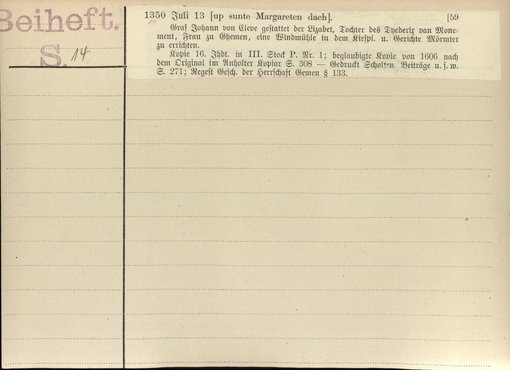 Beiheft.
S. 14
1350 Juli 13 [up sunte Margareten dach]. [59
Graf Johann von Cleve gestattet der Lizabet, Tochter des Dyederix van Mone-
ment, Frau zu Ghemen, eine Windmühle in dem Kirspl. u. Gerichte Mörmter
zu errichten.
Kopie 16. Jhdt. in III. Stock P. Nr. 1; beglaubigte Kopie von 1606 nach
dem Original im Anholter Kopiar S. 308 — Gedruckt Scholten Beiträge u. s. w.
S. 271; Regest Gesch. der Herrschaft Gemen § 133.